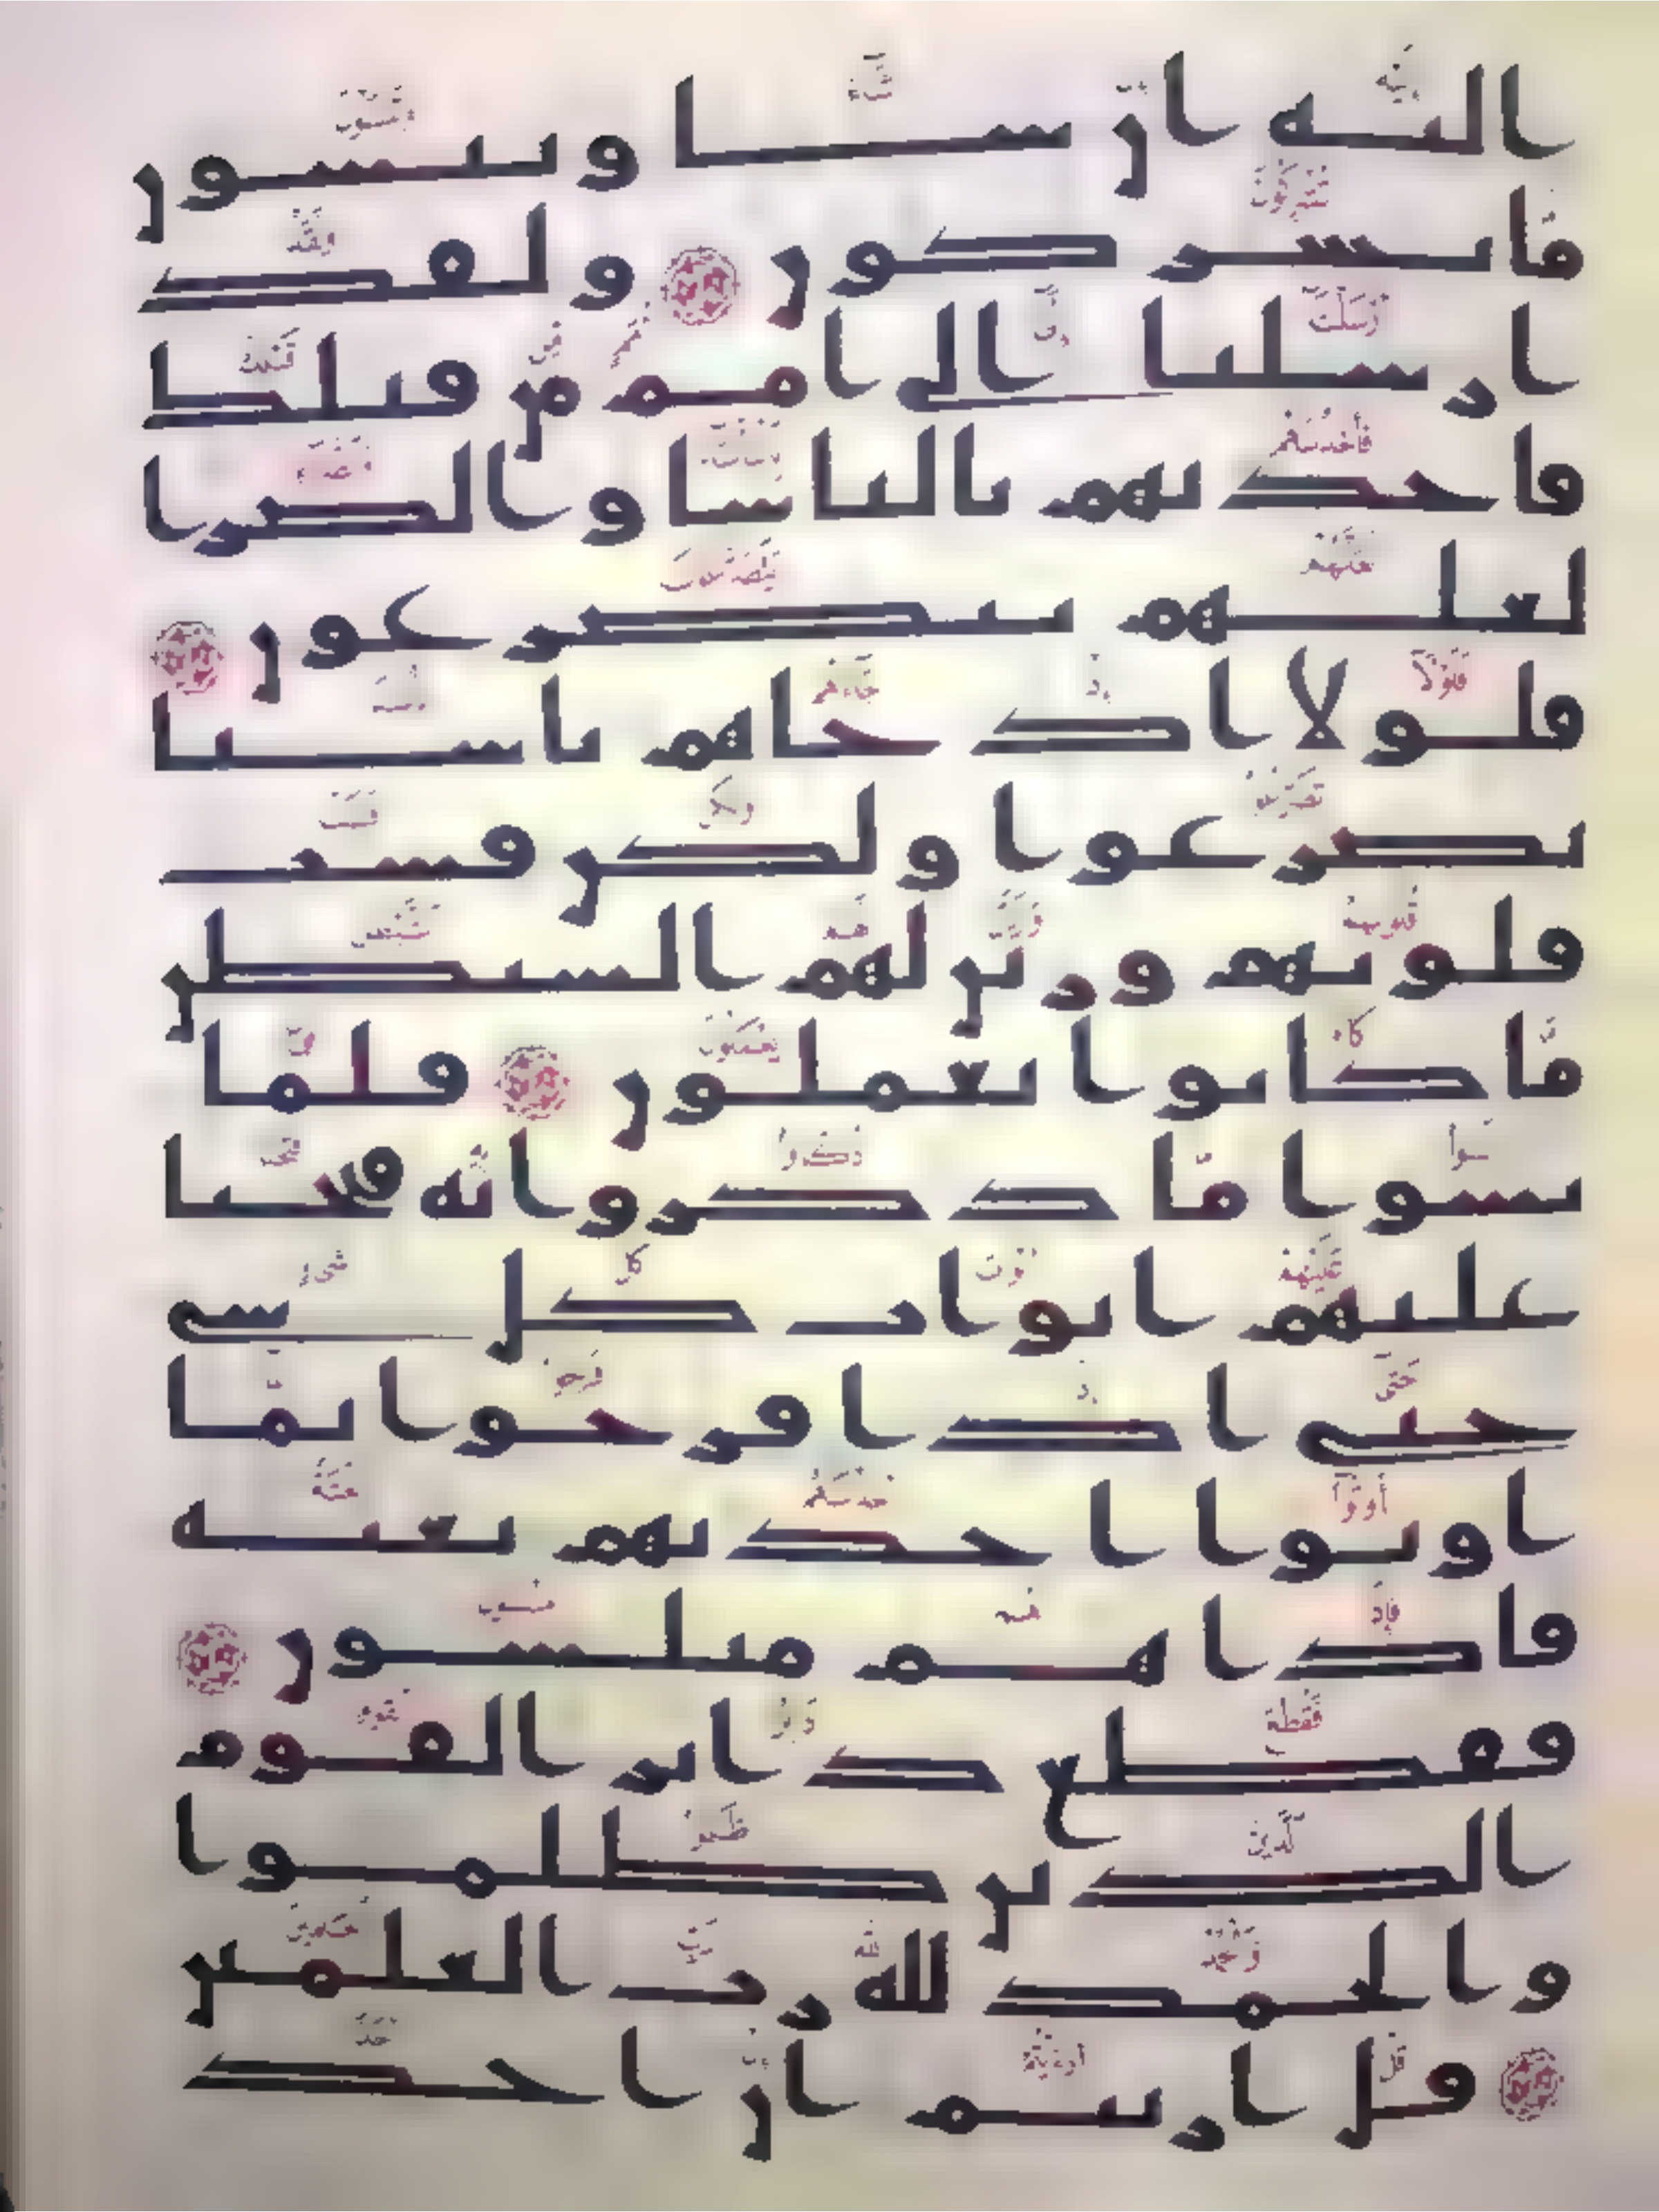 اليه ان شا وتنسون
ما تشركون ولقد
ارسلنا الى امم من قبلك
فاخذنهم بالباسا والضرا
لعلهم يتضرعون
فلولا اذ جاهم باسنا
تضرعوا ولكن قست
قلوبهم وزين لهم الشيطن
مّا كانوا يعملون فلمّا
نسوا مّا ذكروا به فتحنا
عليهم ابواب كل شي
حتّى اذا فرحوا بمّا
اوتوا اخذنهم بغتة
فاذا هم مبلسون
فقطع دابر القوم
الذين ظلموا
والحمد لله رب العلمين
قل اريتم ان اخذ